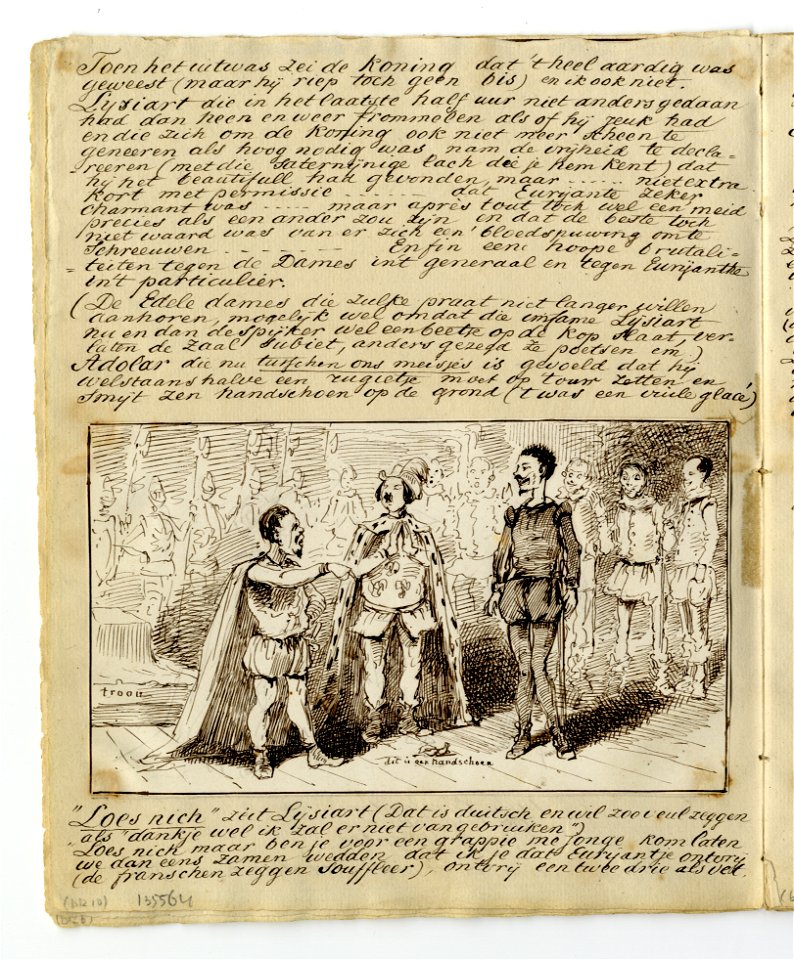 Toen het uit was zei de Koning dat 't heel aardig was
geweest (maar hij riep toch geen bis) en ik ook niet.
Lysiart die in het laatste half uur niet anders gedaan
had dan heen en weer frommelen als of hij jeuk had
en die zich om de Koning ook niet meer scheen te
geneeren als hoog nodig was nam de vrijheid te decla-
-reeren (met die saternijnige lach die je hem kent) dat
hij het beautifull had gevonden, maar ---- niet extra
kort met permissie ---- dat Eurijante zeker
charmant was ---- maar après tout toch wel een meid
precies als een ander zou zijn en dat de beste toch
niet waard was van er zich een bloedspuwing om te
schreeuwen ---- Enfin eene hoope brutali-
-teiten tegen de Dames in 't generaal en tegen Eurijanthe
in 't particulier.
(De Edele dames die zulke praat niet langer willen
aanhoren, mogelijk wel omdat die infame Lysiart
nu en dan de spijker wel een beetje op de kop slaat, ver-
laten de zaal subiet, anders gezegd ze poetsen em)
Adolar die nu tusschen ons meisjes is gevoeld dat hij
welstaanshalve een rugietje moet op touw zetten en
smijt zen handschoen op de grond ('t was een vuile glacé)
troon
dit is een handschoen
"Loes nich" zeit Lysiart (Dat is duitsch en wil zooveul zeggen
als "dankje wel ik zal er niet van gebruiken")
"Loes nich maar ben je voor een grappie me jonge kom laten
we dan eens zamen wedden dat ik je dat Euryantje ontvrij
(de franschen zeggen souffleer), ontvrij een twee drie als
(bl2 10) 135564